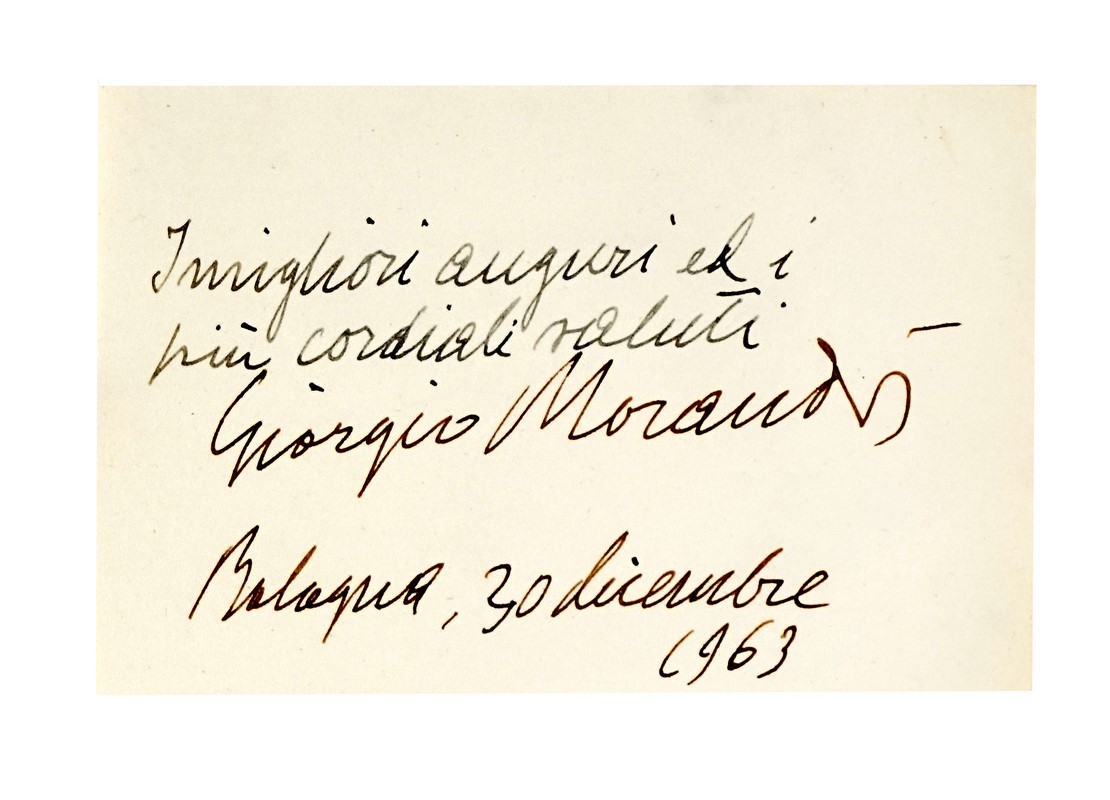 I migliori auguri ed i
più cordiali saluti —
Giorgio Morandi
Bologna, 30 dicembre
1963